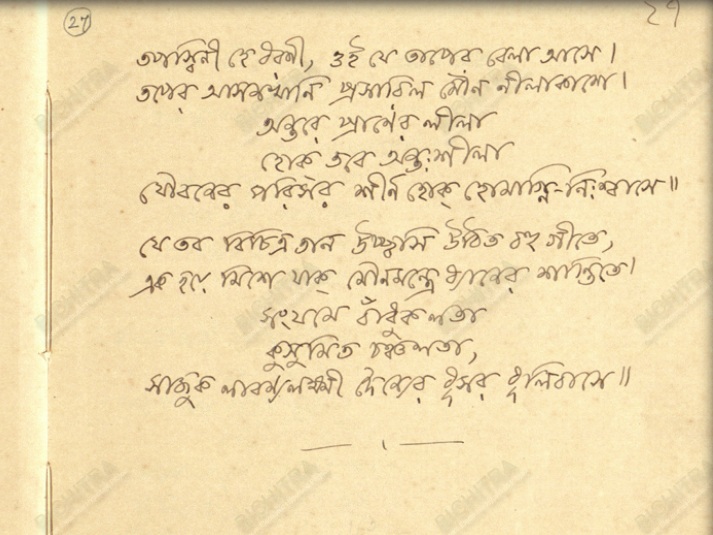 27
27
তপস্বিনী হে ধরণী, ওই যে তাপের বেলা আসে।
তপের আসনখানি প্রসারিল মৌন নীলাকাশে।
অন্তরে প্রাণের লীলা
হোক তব অন্তঃশীলা
যৌবনের পরিসর শীর্ণ হোক্ হোমাগ্নি-নিঃশ্বাসে॥
যে তব বিচিত্র তান উচ্ছ্বসি উঠিত বহু গীতে,
এক হয়ে মিশে যাক্ মৌনমন্ত্রে ধ্যানের শান্তিতে।
সংযমে বাঁধুক লতা
কুসুমিত চঞ্চলতা,
সাজুক লাবণ্যলক্ষ্মী দৈন্যের ধূসর ধূলিবাসে॥
BICHITRA